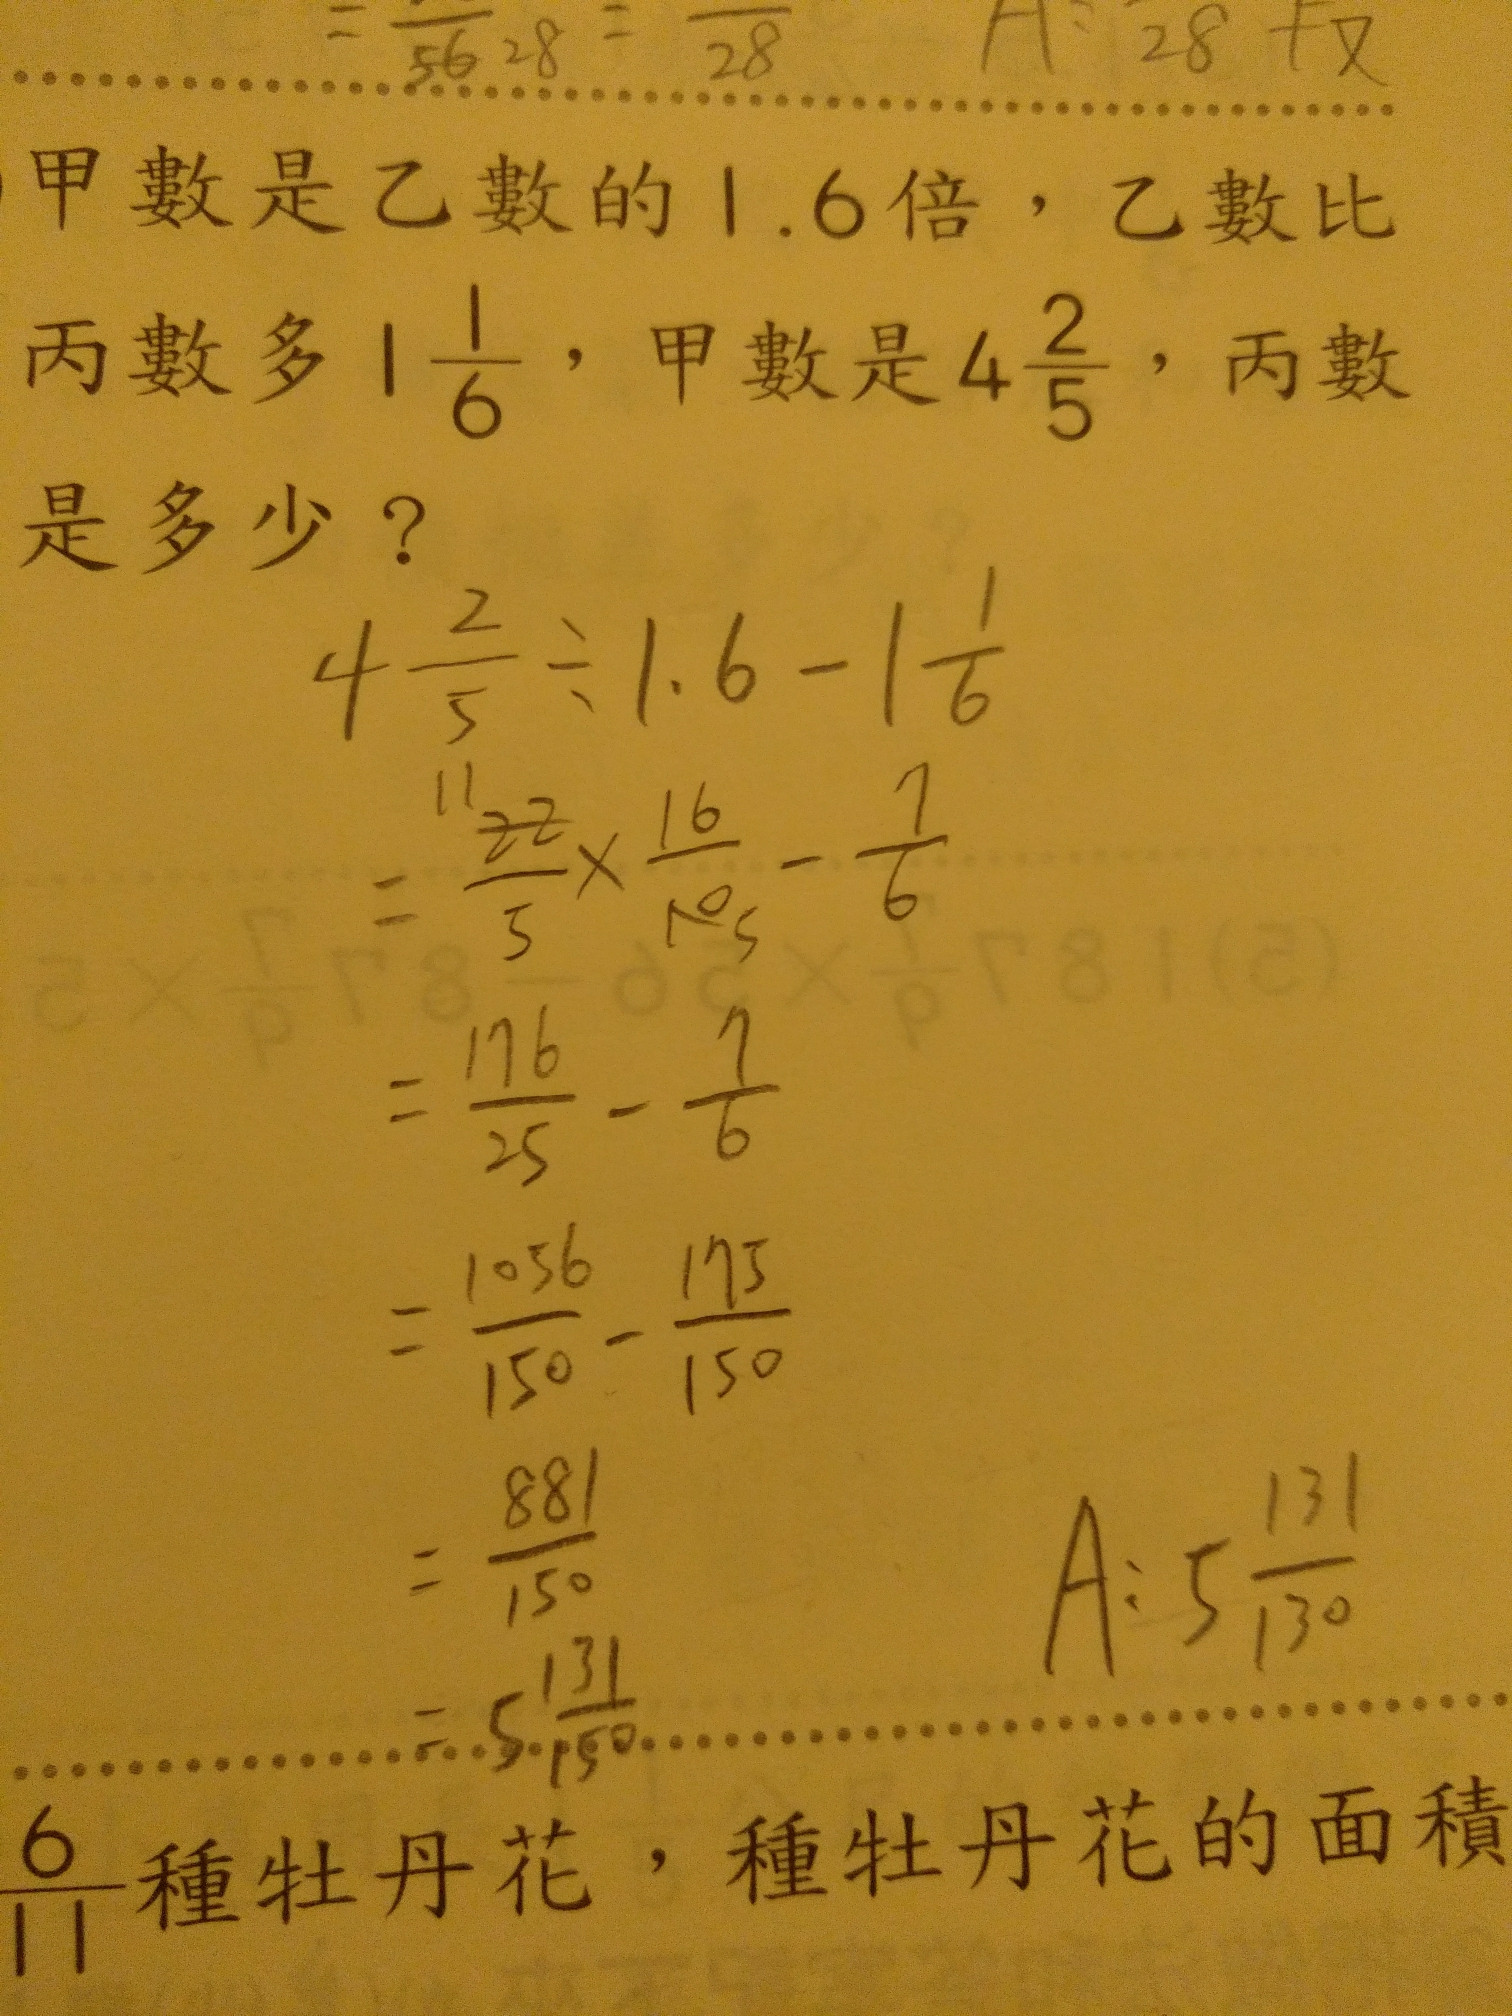 = /56 28 = /28 A: /28
甲數是乙數的1.6倍，乙數比
丙數多1 1/6，甲數是4 2/5，丙數
是多少？
4 2/5 ÷ 1.6 - 1 1/6
= 11 22/5 × 16/10 5 - 7/6
= 176/25 - 7/6
= 1056/150 - 175/150
= 881/150
= 5 131/150
A: 5 131/130
6/11 種牡丹花，種牡丹花的面積